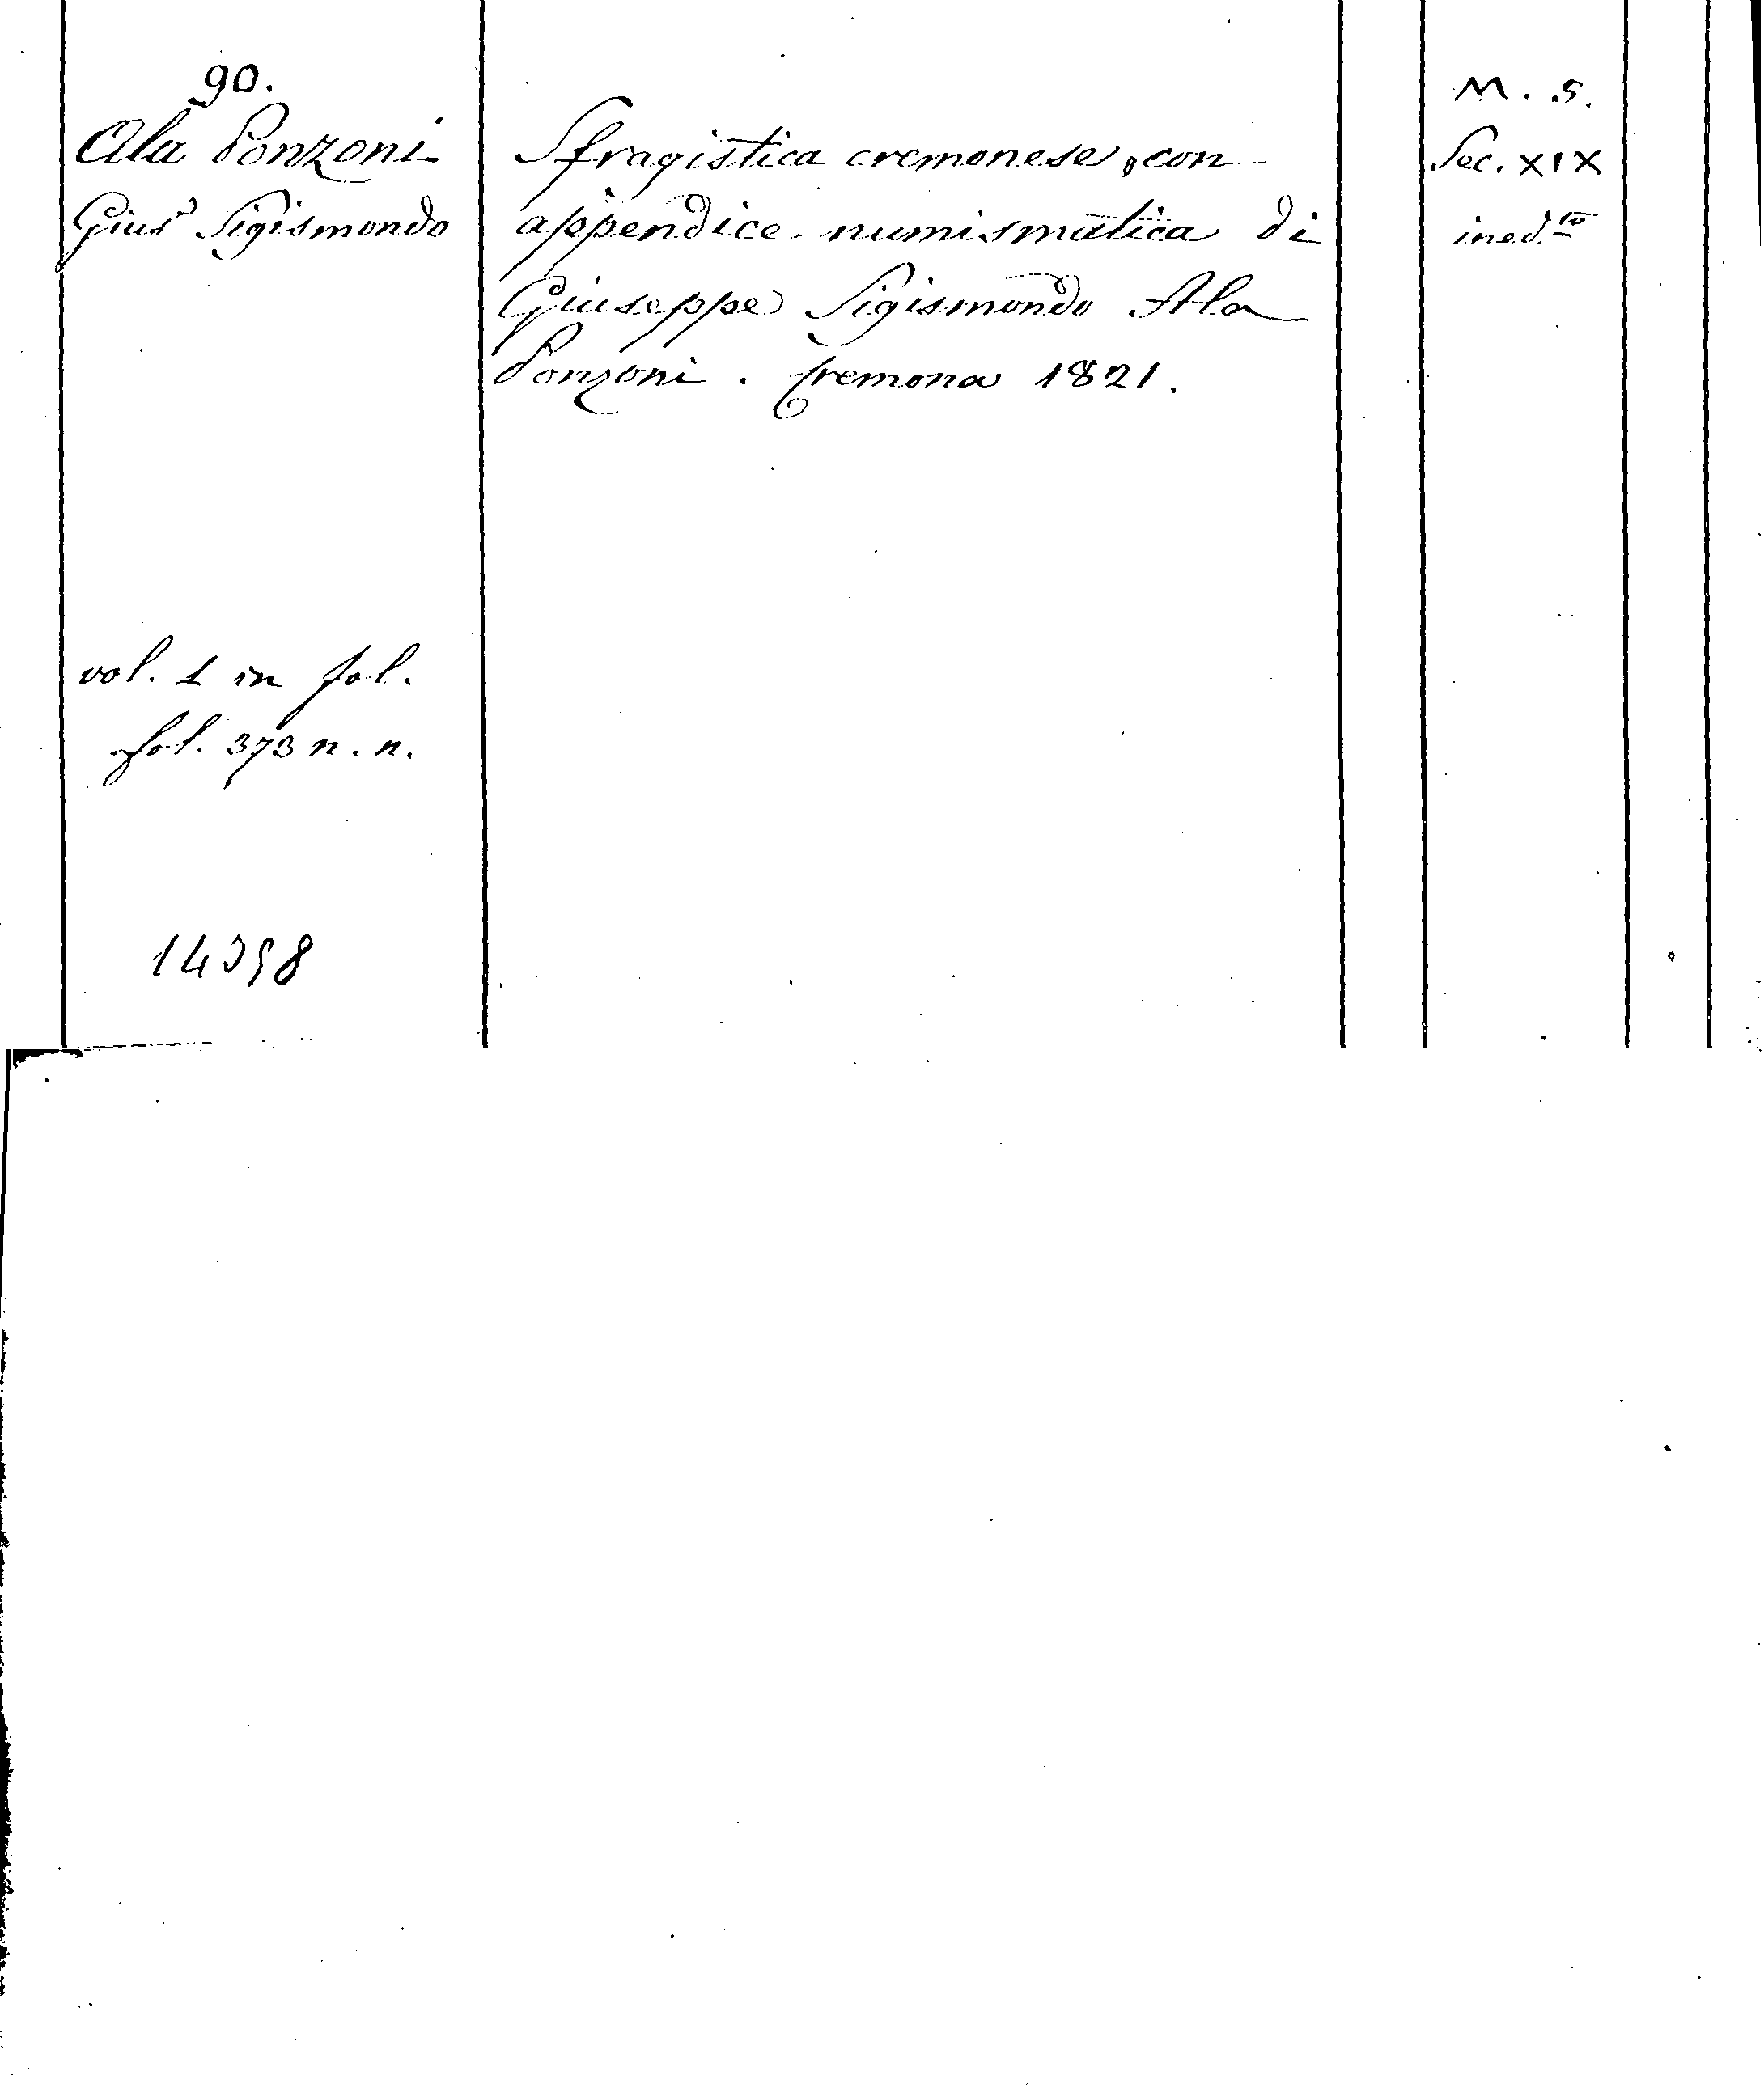 90.
Ala Ponzoni
Gius.e Sigismondo
vol. 1 in fol.
fol. 373 n. n.
14398
Sfragistica cremonese, con
appendice numismatica di
Giuseppe Sigismondo Ala
Ponzoni. Cremona 1821.
M. S.
Sec. XIX
ined.to